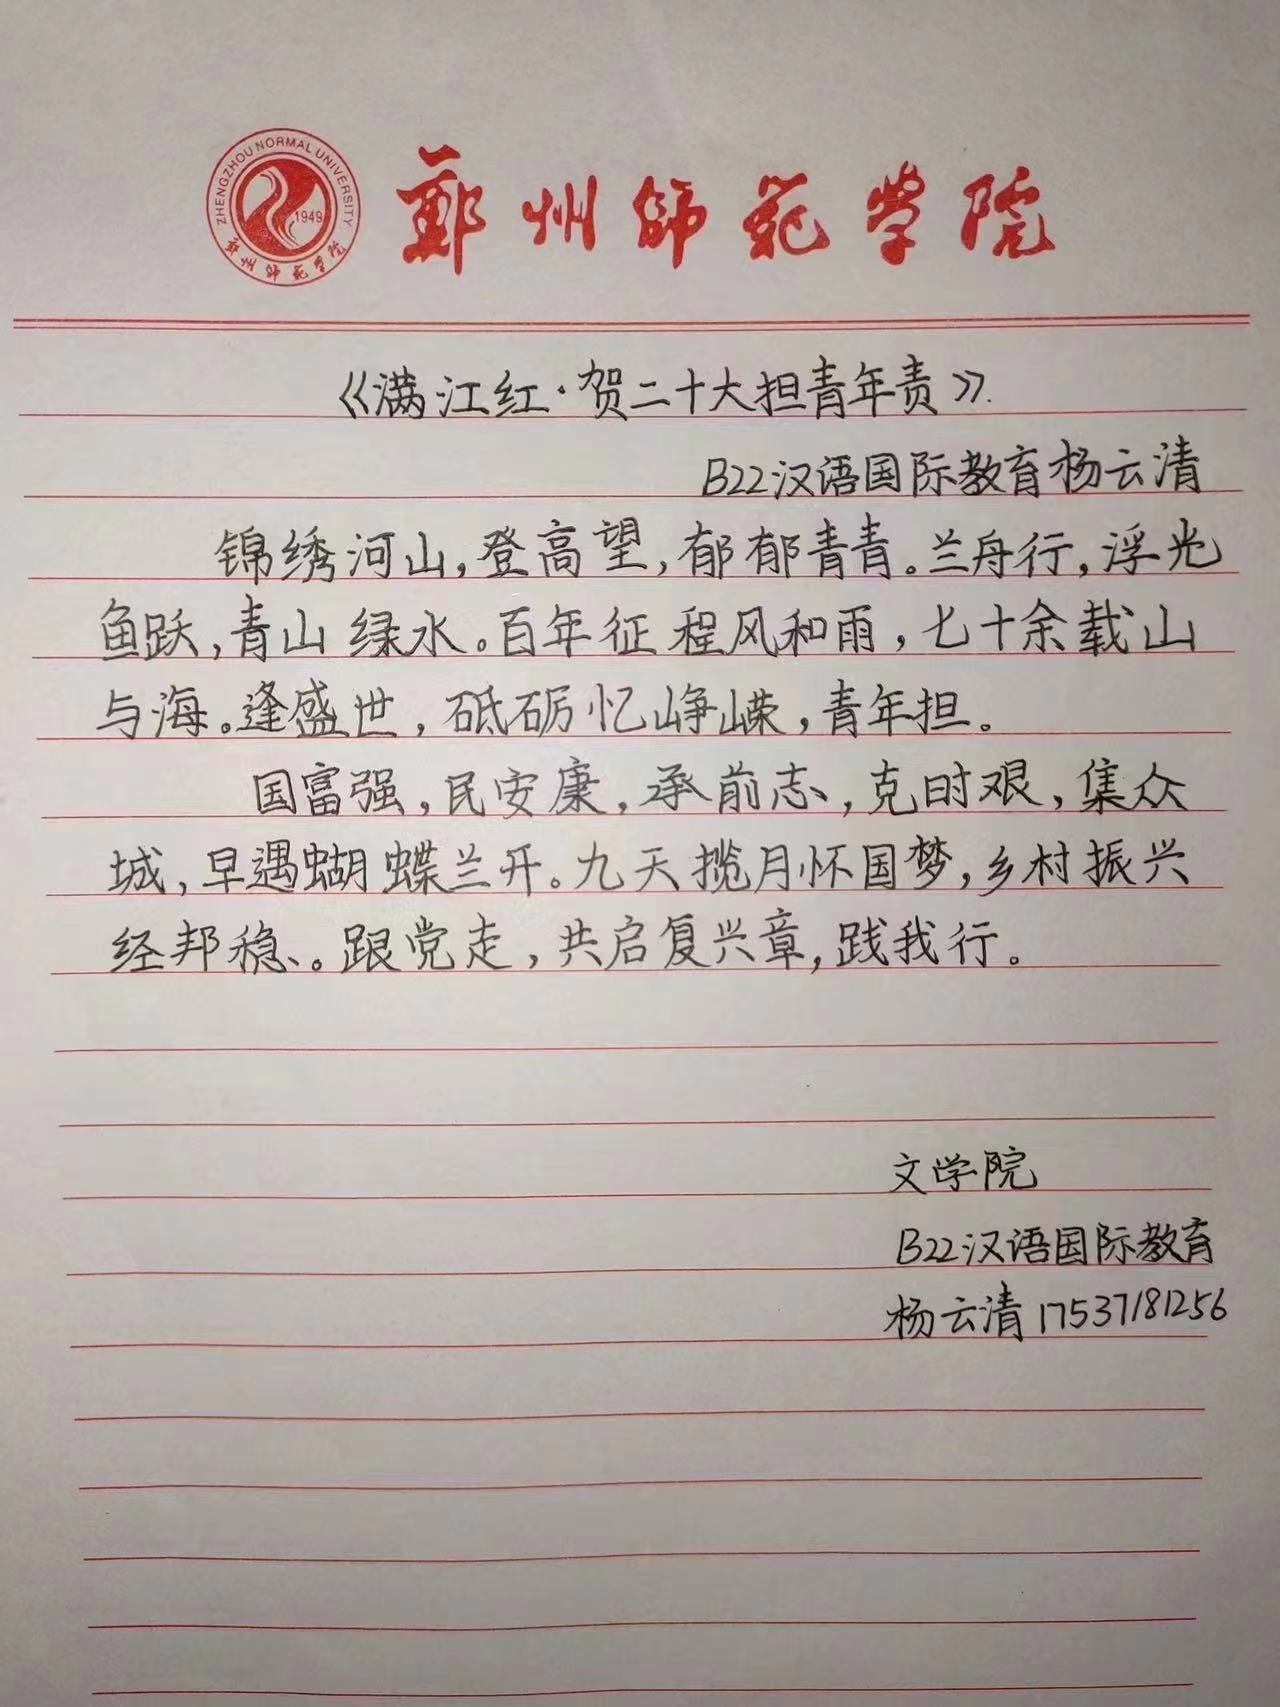 ZHENGZHOU NORMAL UNIVERSITY
1949
郑州师范学院
郑州师范学院
《满江红·贺二十大担青年责》.
B22汉语国际教育杨云清
锦绣河山,登高望,郁郁青青。兰舟行,浮光
鱼跃,青山绿水。百年征程风和雨,七十余载山
与海。逢盛世,砥砺忆峥嵘,青年担。
国富强,民安康,承前志,克时艰,集众
城,早遇蝴蝶兰开。九天揽月怀国梦,乡村振兴
经邦稳、。跟党走,共启复兴章,践我行。
文学院
B22汉语国际教育
杨云清17537181256